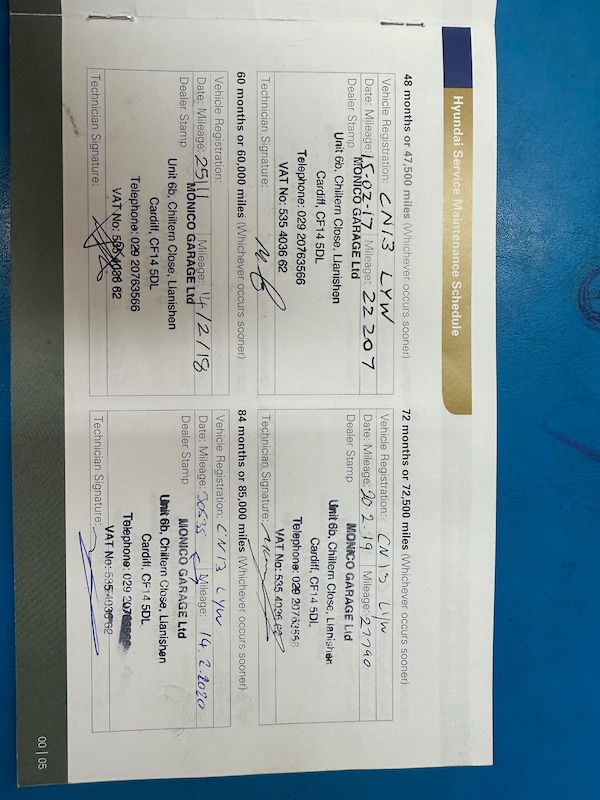 Hyundai Service Maintenance Schedule
48 months or 47,500 miles (Whichever occurs sooner)
Vehicle Registration: CN13 LYW
Date: Mileage: 15-02-17 Mileage: 22207
Dealer Stamp
MONICO GARAGE Ltd
Unit 6b, Chiltern Close, Llanishen
Cardiff, CF14 5DL
Telephone: 029 20763566
VAT No: 535 4036 62
Technician Signature:
60 months or 60,000 miles (Whichever occurs sooner)
Vehicle Registration:
Date: Mileage: 25111 Mileage: 14/2/18
Dealer Stamp
MONICO GARAGE Ltd
Unit 6b, Chiltern Close, Llanishen
Cardiff, CF14 5DL
Telephone: 029 20763566
VAT No: 535 4036 62
Technician Signature:
72 months or 72,500 miles (Whichever occurs sooner)
Vehicle Registration: CN13 LYW
Date: Mileage: 20 2.19 Mileage: 27790
Dealer Stamp
MONICO GARAGE Ltd
Unit 6b, Chiltern Close, Llanishen
Cardiff, CF14 5DL
Telephone: 029 20763566
VAT No: 535 4036 62
Technician Signature:
84 months or 85,000 miles (Whichever occurs sooner)
Vehicle Registration: CN13 LYW
Date: Mileage: 30535 Mileage: 14.2.2020
Dealer Stamp
MONICO GARAGE Ltd
Unit 6b, Chiltern Close, Llanishen
Cardiff, CF14 5DL
Telephone: 029
VAT No: 535 4036 62
Technician Signature:
00 | 05